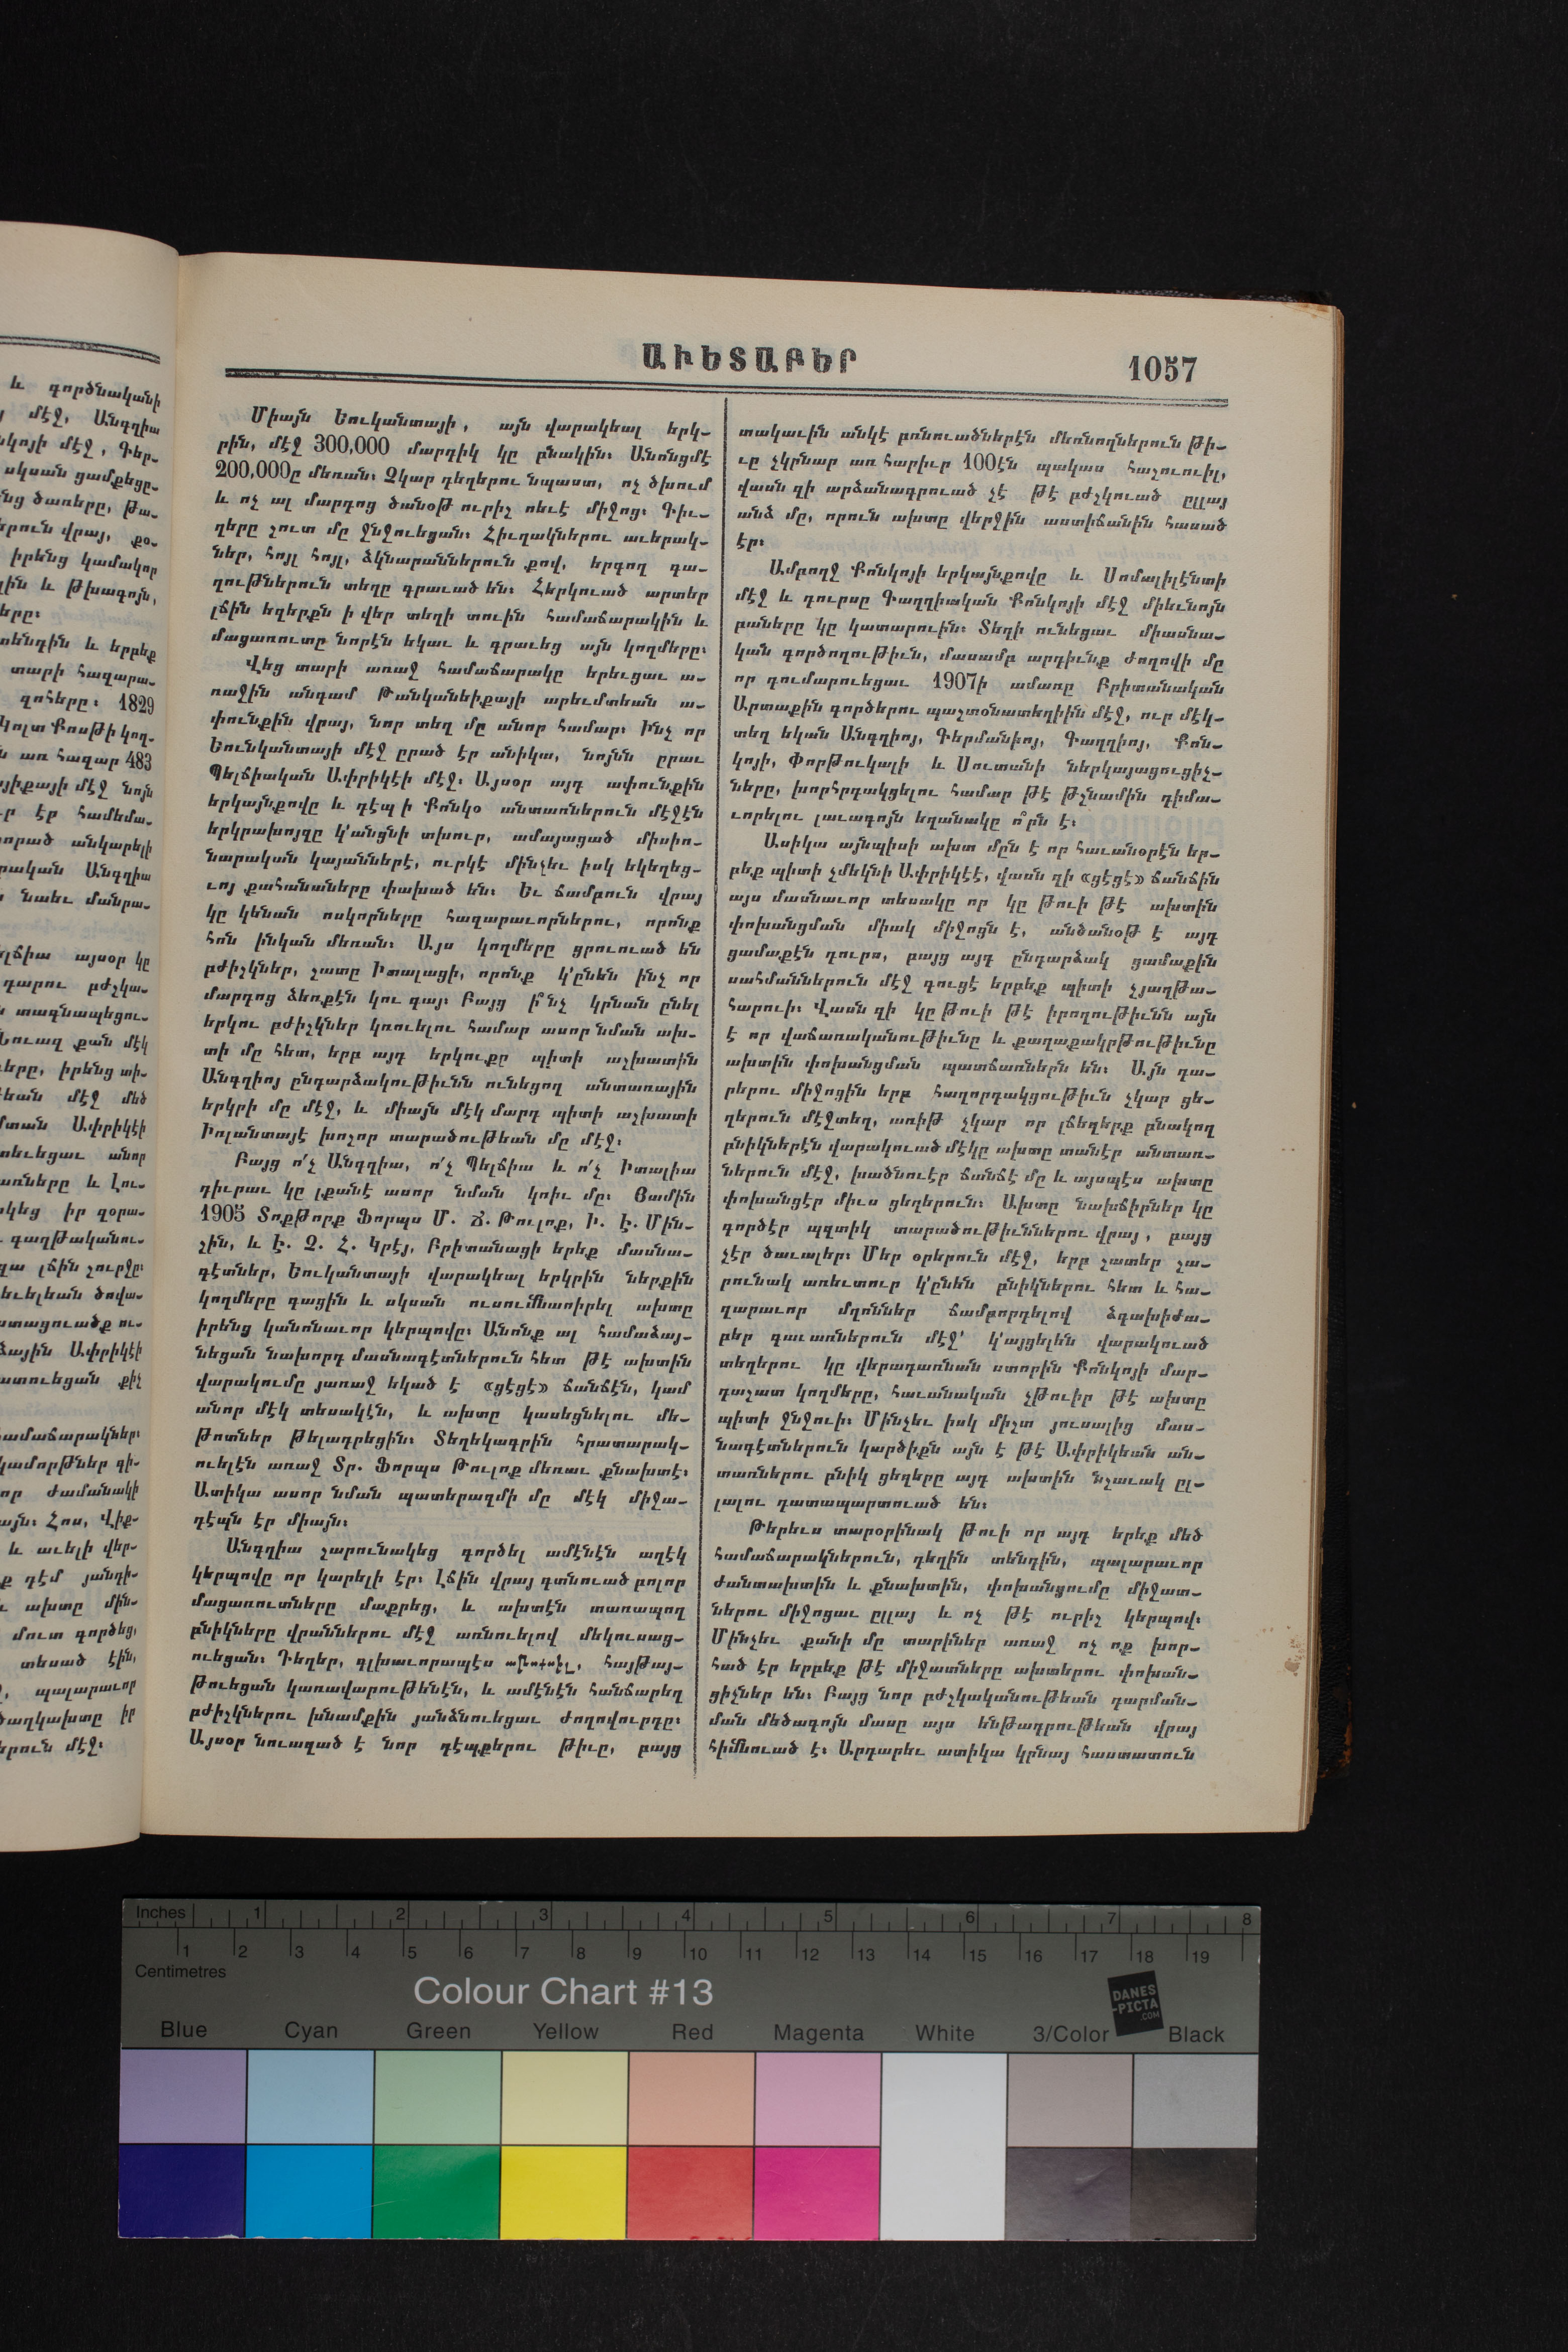 ԱՒԵՏԱԲԵՐ
1057
և գործնականի
մէջ, Անգղիա
նկոյի մէջ, Գեր-
սկսան ցամքեցը-
նց ծառերը, թա-
երուն վրայ, քօ-
իրենց կամակոր
լին և Թխագոյն,
երը։
տենդին և երբեք
տարի հազարա-
զոհերը։ 1829
կոլտ Քոսթի կող-
ն առ հազար 483
այիքայի մէջ նոյն
ւր էր համեմա-
որած անկարելի
րական Անգղիա
նաեւ մանրա-
ելճիա այսօր կը
դարու բժշկա-
տագնապեցու-
Նուազ քան մէկ
ները, իրենց տի-
եան մէջ մեծ
մտան Ափրիկէի
տեւեցաւ անոր
առները և Լու-
րկեց իր զօրա-
գաղթականու-
զա լճին շուրջը։
եւելեան ծովա-
ստացուածք ու-
ձային Ափրիկէի
ստուեցան քիչ
ամաճարակներ։
կամորթներ գի-
որ ժամանակի
այն։ Հոս, Վիք-
և աւելի վեր-
ք դէմ յանդի-
ւ ախտը մին-
մուտ գործեց,
տեսած էին,
պալարաւոր
ծաղկախտը իր
երուն մէջ։
Միայն Եուկանտայի, այն վարակեալ երկ-
րին, մէջ 300,000 մարդիկ կը բնակին։ Անոնցմէ
200,000ը մեռան։ Չկար դեղերու նպաստ, ոչ ծխում
և ոչ ալ մարդոց ծանօթ ուրիշ ոեւէ միջոց։ Գիւ-
ղերը շուտ մը ջնջուեցան։ Հիւղակներու աւերակ-
ներ, հոյլ հոյլ, ձկնարաններուն քով, երգող գա-
ղութներուն տեղը գրաւած են։ Հերկուած արտեր
լճին եզերքն ի վեր տեղի տուին համաճարակին և
մացառուտը նորէն եկաւ և գրաւեց այն կողմերը։
Վեց տարի առաջ համաճարակը երեւցաւ ա-
ռաջին անգամ Թանկանեիքայի արեւմտեան ա-
փունքին վրայ, նոր տեղ մը անոր համար։ Ինչ որ
Եունկանտայի մէջ ըրած էր անիկա, նոյնն ըրաւ
Պելճիական Ափրիկէի մէջ։ Այսօր այդ ափունքին
երկայնքովը և դէպ ի Քոնկօ անտառներուն մէջէն
երկրախոյզը կ'անցնի տխուր, ամայացած միսիո-
նարական կայաններէ, ուրկէ մինչեւ իսկ եկեղեց-
ւոյ քահանաները փախած են։ Եւ ճամբուն վրայ
կը կենան ոսկորները հազարաւորներու, որոնք
հոն ինկան մեռան։ Այս կողմերը ցրուուած են
բժիշկներ, շատը Իտալացի, որոնք կ'ընեն ինչ որ
մարդոց ձեռքէն կու գայ։ Բայց ի՞նչ կրնան ընել
երկու բժիշկներ կռուելու համար ասոր նման ախ-
տի մը հետ, երբ այդ երկուքը պիտի աշխատին
Անգղիոյ ընդարձակութիւնն ունեցող անտառային
երկրի մը մէջ, և միայն մէկ մարդ պիտի աշխատի
Իոլանտայէ խոշոր տարածութեան մը մէջ։
Բայց ո՛չ Անգղիա, ո՛չ Պելճիա և ո՛չ Իտալիա
դիւրաւ կը լքանէ ասոր նման կռիւ մը։ Յամին
1905 Տոքթորք Ֆորպս Մ. Ճ. Թուլոք, Ի. Է. Մին-
չին, և Է. Չ. Հ. Կրէյ, Բրիտանացի երեք մասնա-
գէտներ, Եուկանտայի վարակեալ երկրին ներքին
կողմերը գացին և սկսան ուսումնասիրել ախտը
իրենց կանոնաւոր կերպովը։ Անոնք ալ համաձայ-
նեցան նախորդ մասնագէտներուն հետ թէ ախտին
վարակումը յառաջ եկած է «ցէցէ» ճանճէն, կամ
անոր մէկ տեսակէն, և ախտը կասեցնելու մե-
թոտներ թելադրեցին։ Տեղեկագրին հրատարակ-
ուելէն առաջ Տր. Ֆորպս Թուլոք մեռաւ քնախտէ։
Ատիկա ասոր նման պատերազմի մը մէկ միջա-
դէպն էր միայն։
Անգղիա շարունակեց գործել ամէնէն աղէկ
կերպովը որ կարելի էր։ Լճին վրայ գտնուած բոլոր
մացառուտները մաքրեց, և ախտէն տառապող
բնիկները վրաններու մէջ առնուելով մեկուսաց-
ուեցան։ Դեղեր, գլխաւորապէս հայթայ-
թուեցան կառավարութենէն, և ամէնէն հանճարեղ
բժիշկներու խնամքին յանձնուեցաւ ժողովուրդը։
Այսօր նուազած է նոր դէպքերու թիւը, բայց
տակաւին անկէ բռնուածներէն մեռնողներուն թի-
ւը չկրնար առ հարիւր 100էն պակաս հաշուուիլ,
վասն զի արձանագրուած չէ թէ բժշկուած ըլլայ
անձ մը, որուն ախտը վերջին աստիճանին հասած
էր։
Ամբողջ Քոնկոյի երկայնքովը և Սոմալիլէնտի
մէջ և դուրսը Գաղղիական Քոնկոյի մէջ միեւնոյն
բաները կը կատարուին։ Տեղի ունեցաւ միասնա-
կան գործողութիւն, մասամբ արդիւնք ժողովի մը
որ գումարուեցաւ 1907ի ամառը Բրիտանական
Արտաքին գործերու պաշտօնատեղիին մէջ, ուր մէկ-
տեղ եկան Անգղիոյ, Գերմանիոյ, Գաղղիոյ, Քոն-
կոյի, Փորթուկալի և Սուտանի ներկայացուցիչ-
ները, խորհրդակցելու համար թէ թշնամին դիմա-
ւորելու լաւագոյն եղանակը ո՞րն է։
Ասիկա այնպիսի ախտ մըն է որ հաւանօրէն եր-
բեք պիտի չմեկնի Ափրիկէէ, վասն զի «ցէցէ» ճանճին
այս մասնաւոր տեսակը որ կը թուի թէ ախտին
փոխանցման միակ միջոցն է, անծանօթ է այդ
ցամաքէն դուրս, բայց այդ ընդարձակ ցամաքին
սահմաններուն մէջ դուցէ երբեք պիտի չյաղթա-
հարուի։ Վասն զի կը թուի թէ իրողութիւնն այն
է որ վաճառականութիւնը և քաղաքակրթութիւնը
ախտին փոխանցման պատճառներն են։ Այն դա-
րերու միջոցին երբ հաղորդակցութիւն չկար ցե-
ղերուն մէջտեղ, առիթ չկար որ լճեզերք բնակող
բնիկներէն վարակուած մէկը ախտը տանէր անտառ-
ներուն մէջ, խածնուէր ճանճէ մը և այսպէս ախտը
փոխանցէր միւս ցեղերուն։ Ախտը նախճիրներ կը
գործէր պզտիկ տարածութիւններու վրայ, բայց
չէր ծաւալեր։ Մեր օրերուն մէջ, երբ շատեր շա-
րունակ առեւտուր կ'ընեն բնիկներու հետ և հա-
զարաւոր մղոններ ճամբորդելով ձգախիժա-
բեր գաւառներուն մէջ՝ կ'այցելեն վարակուած
տեղերու կը վերադառնան ստորին Քոնկոյի մար-
դաշատ կողմերը, հաւանական չթուիր թէ ախտը
պիտի ջնջուի։ Մինչեւ իսկ միշտ յուսալից մաս-
նագէտներուն կարծիքն այն է թէ Ափրիկեան ան-
տառներու բնիկ ցեղերը այդ ախտին նշաւակ ըլ-
լալու դատապարտուած են։
Թերեւս տարօրինակ թուի որ այդ երեք մեծ
համաճարակներուն, դեղին տենդին, պալարաւոր
ժանտախտին և քնախտին, փոխանցումը միջատ-
ներու միջոցաւ ըլլայ և ոչ թէ ուրիշ կերպով։
Մինչեւ քանի մը տարիներ առաջ ոչ ոք խոր-
հած էր երբեք թէ միջատները ախտերու փոխան-
ցիչներ են։ Բայց նոր բժշկականութեան դարման-
ման մեծագոյն մասը այս ենթադրութեան վրայ
հիմնուած է։ Արդարեւ ատիկա կրնայ հաստատուն
Inches 1 2 3 4 5 6 7 8
1 2 3 4 5 6 7 8 9 10 11 12 13 14 15 16 17 18 19
Centimetres
Colour Chart #13
DANES
-PICTA
.COM
Blue Cyan Green Yellow Red Magenta White 3/Color Black